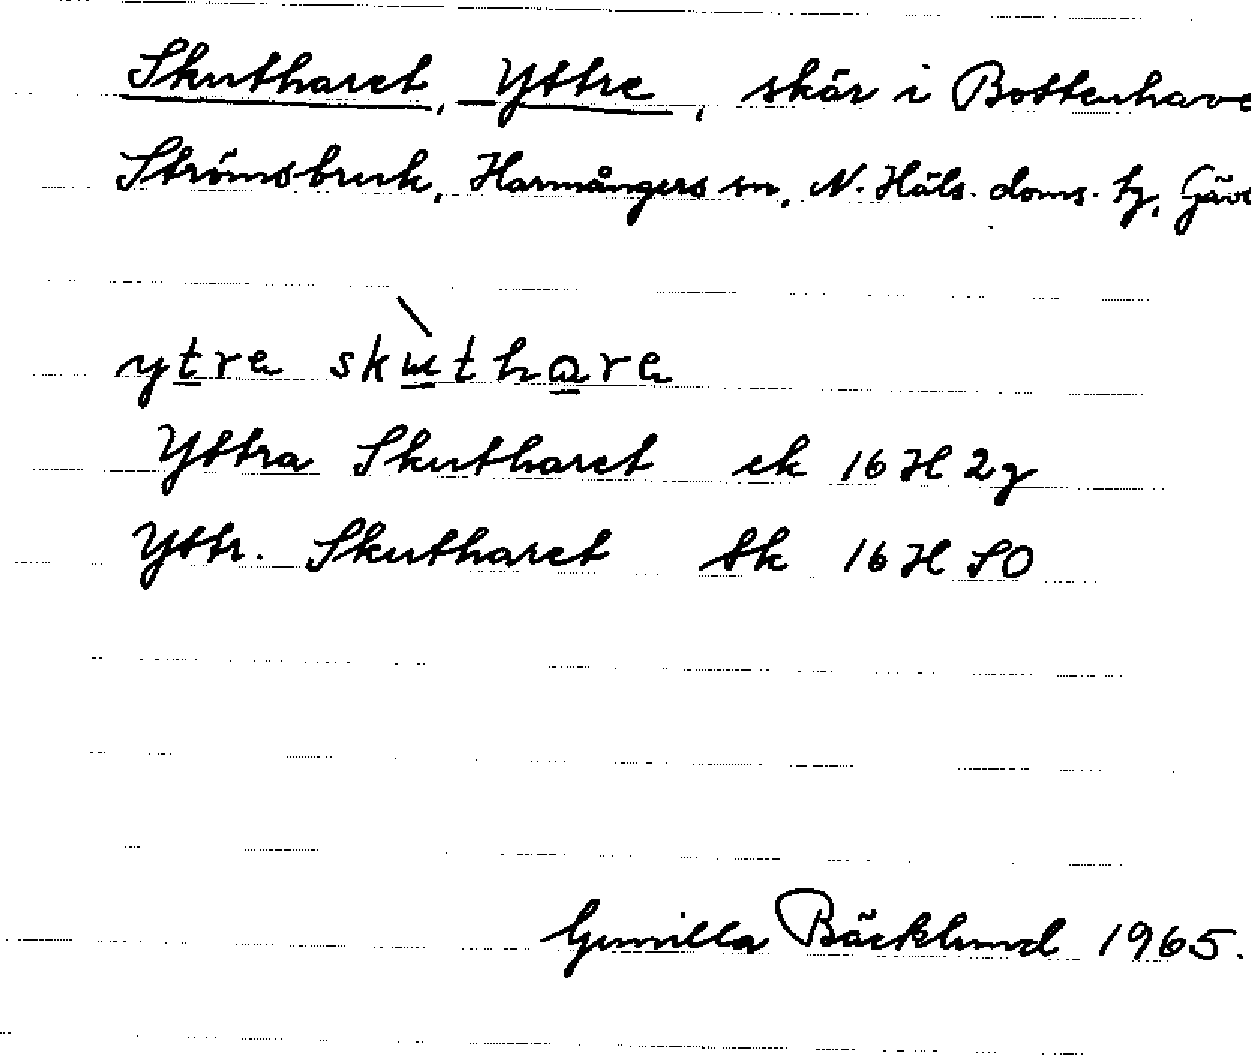 Skutharet, Yttre, skär i Bottenhave
Strömsbruk, Harmångers sn, N. Häls. doms. tg, Gäv
ytre skùthare
Yttra Skutharet ek 16 H 2g
Yttr. Skutharet tk 16 H SO
Gunilla Bäcklund 1965.